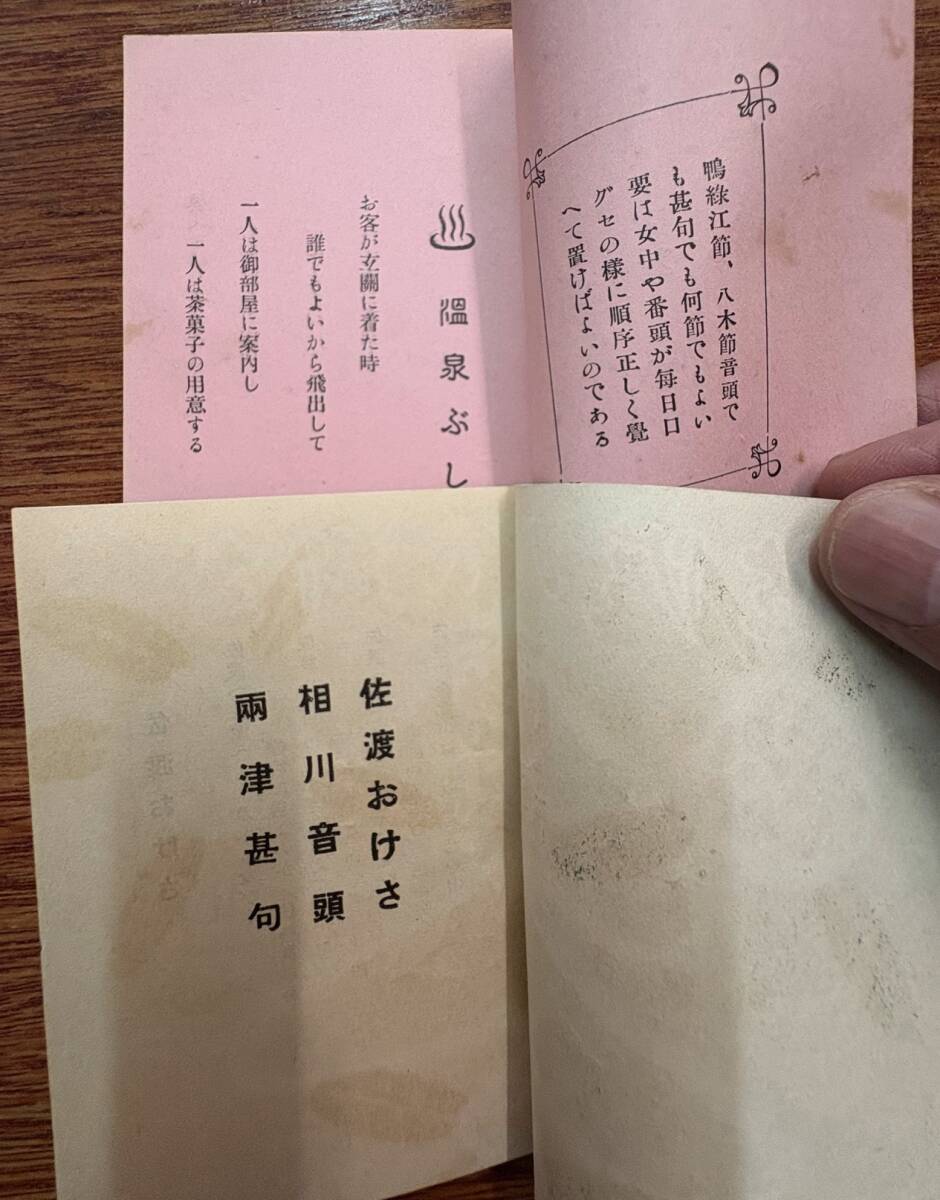 鴨綠江節、八木節音頭で
も甚句でも何節でもよい
要は女中や番頭が每日口
グセの様に順序正しく覺
へて置けばよいのである
♨ 溫泉ぶし
お客が玄關に着た時
誰でもよいから飛出して
一人は御部屋に案內し
一人は茶菓子の用意する
佐渡おけさ
相川音頭
兩津甚句